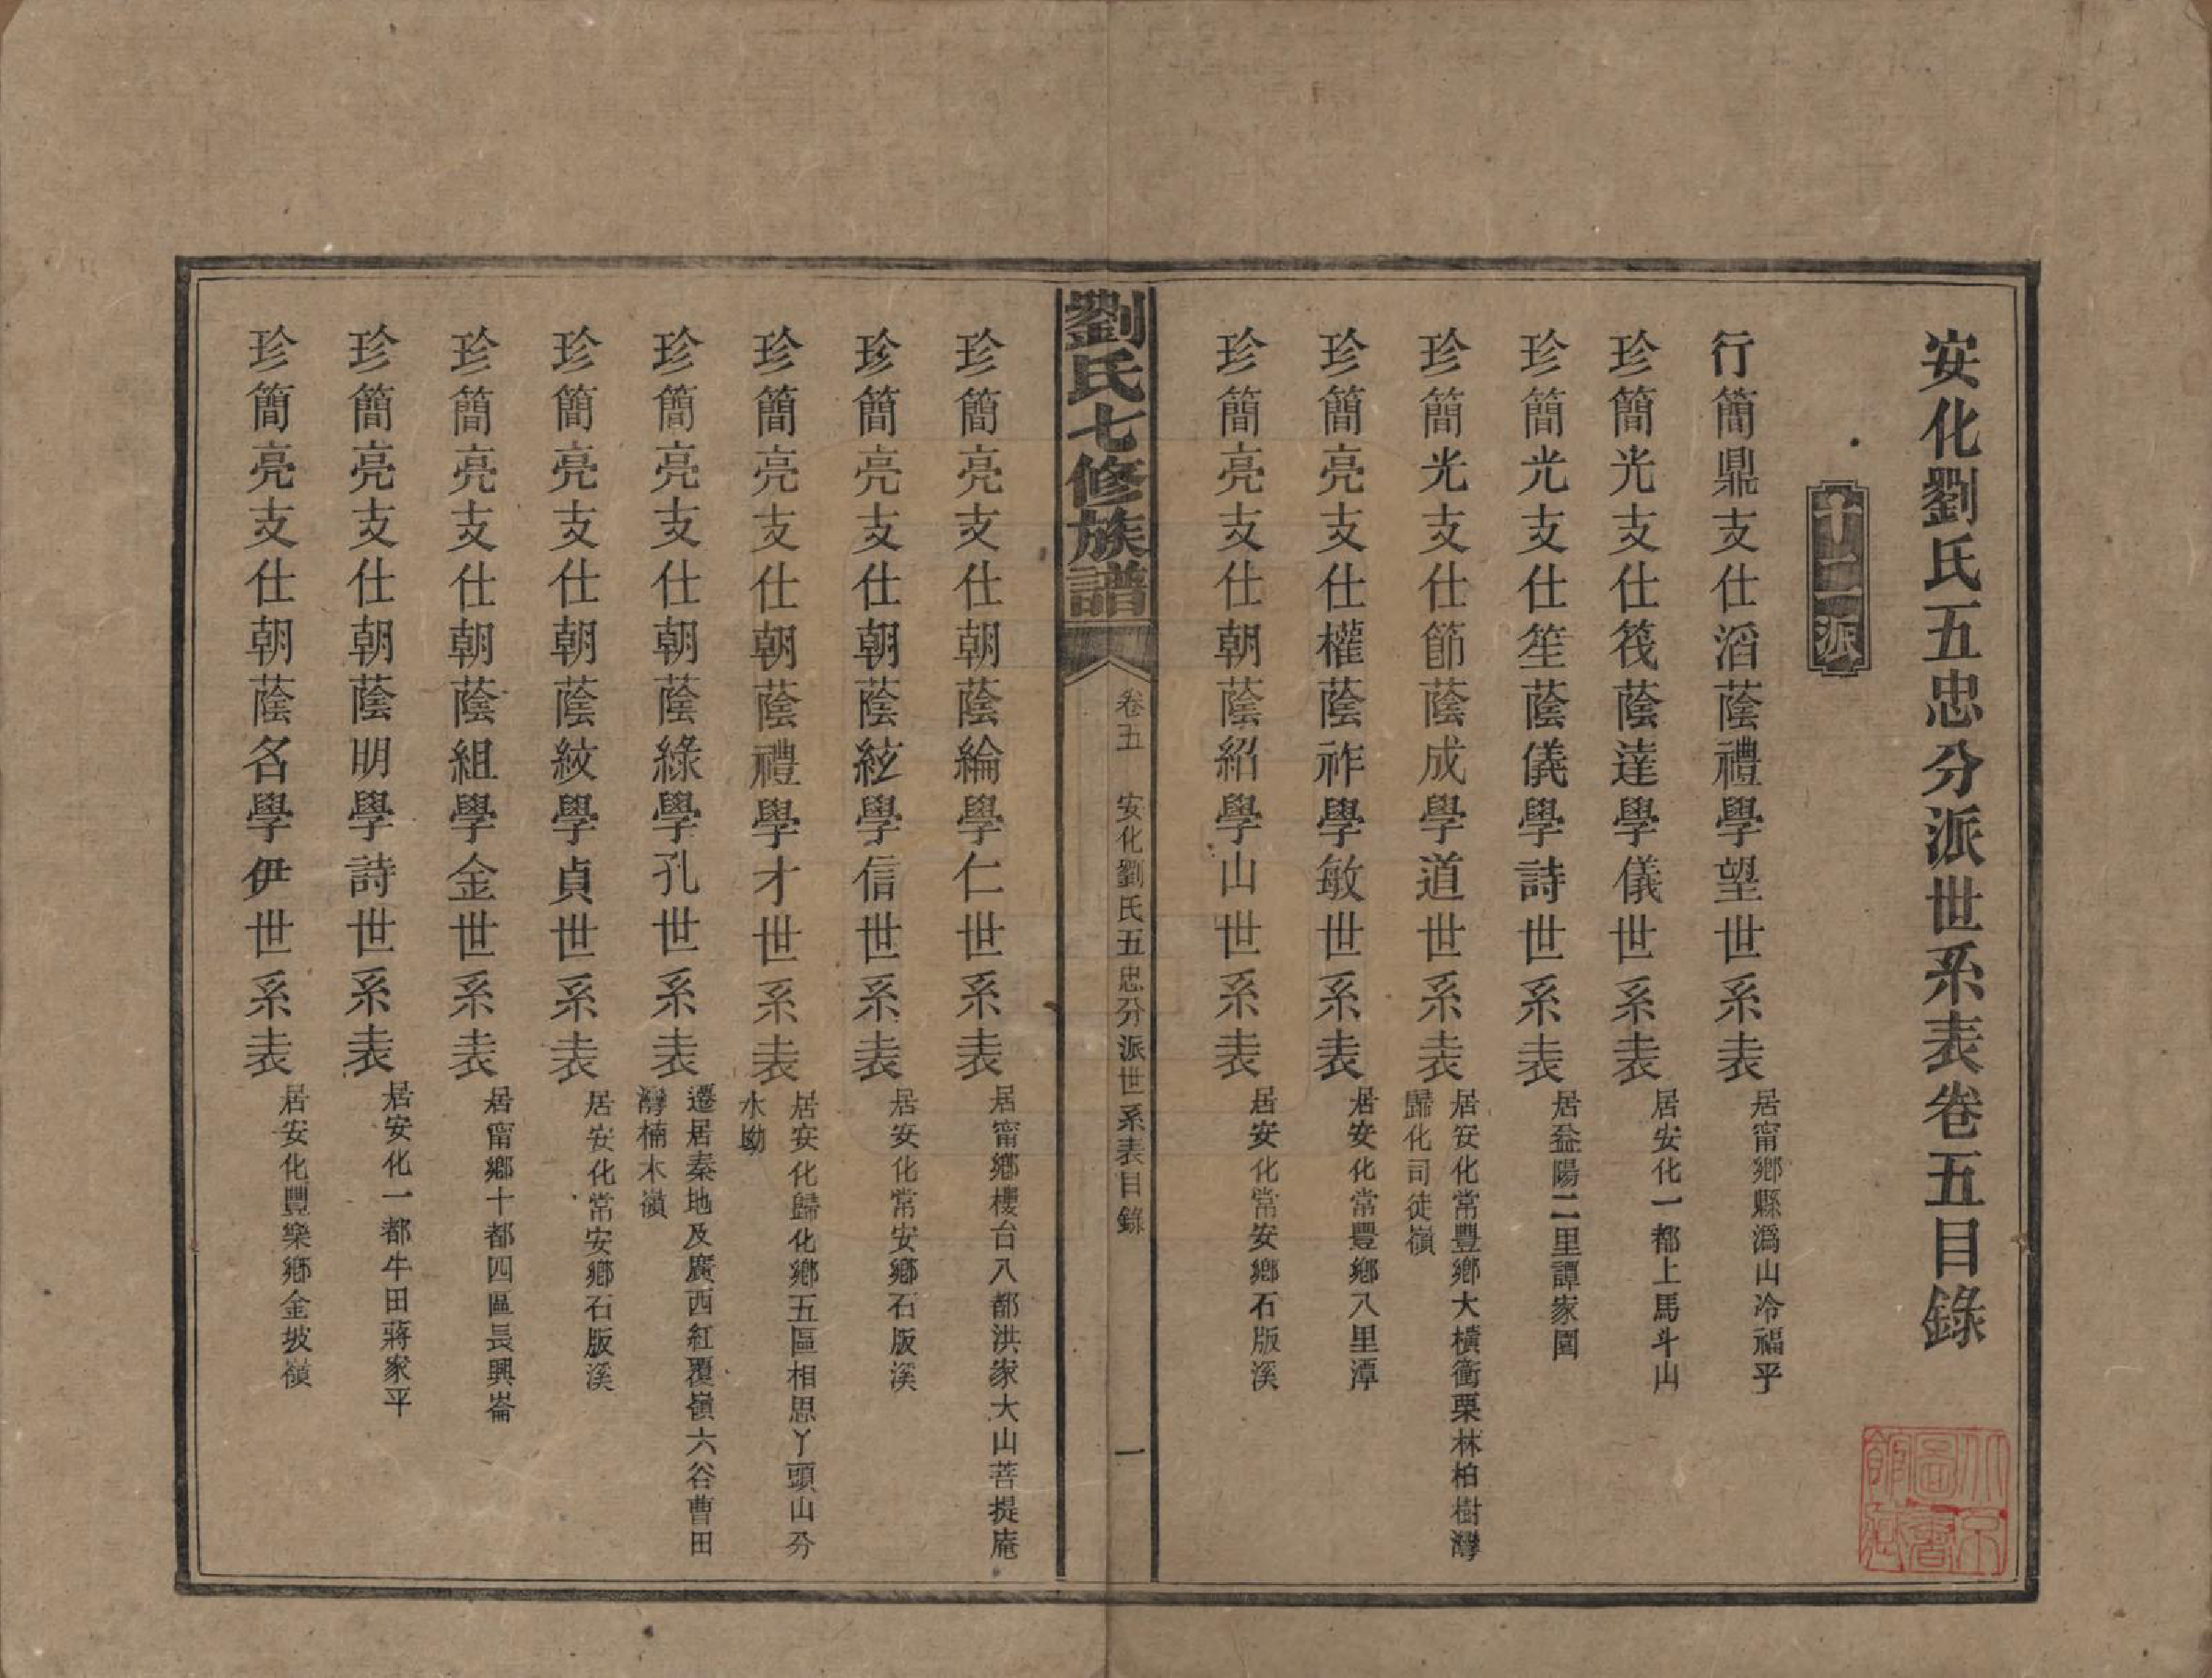 安化劉氏五忠分派世系表卷五目錄
十二派
行簡鼎支仕滔蔭禮學望世系表 居甯鄉縣潙山冷福乎
珍簡光支仕筏蔭達學儀世系表 居安化一都上馬斗山
珍簡光支仕笙蔭儀學詩世系表 居益陽二里譚家園
珍簡光支仕節蔭成學道世系表 居安化常豐鄉大橫衝栗林柏樹灣
歸化司徒嶺
珍簡亮支仕權蔭祚學敏世系表 居安化常豐鄉八里潭
珍簡亮支仕朝蔭紹學山世系表 居安化常安鄉石版溪
劉氏七修族譜 卷五 安化劉氏五忠分派世系表目錄 一
珍簡亮支仕朝蔭綸學仁世系表 居甯鄉樓台八都洪家大山菩提庵
珍簡亮支仕朝蔭絃學信世系表 居安化常安鄉石版溪
珍簡亮支仕朝蔭禮學才世系表 居安化歸化鄉五區相思丫頭山分
水坳
珍簡亮支仕朝蔭綠學孔世系表 遷居秦地及廣西紅覆嶺六谷曹田
灣楠木嶺
珍簡亮支仕朝蔭紋學貞世系表 居安化常安鄉石版溪
珍簡亮支仕朝蔭組學金世系表 居甯鄉十都四區長興崙
珍簡亮支仕朝蔭明學詩世系表 居安化一都牛田蔣家平
珍簡亮支仕朝蔭名學伊世系表 居安化豐樂鄉金坡嶺